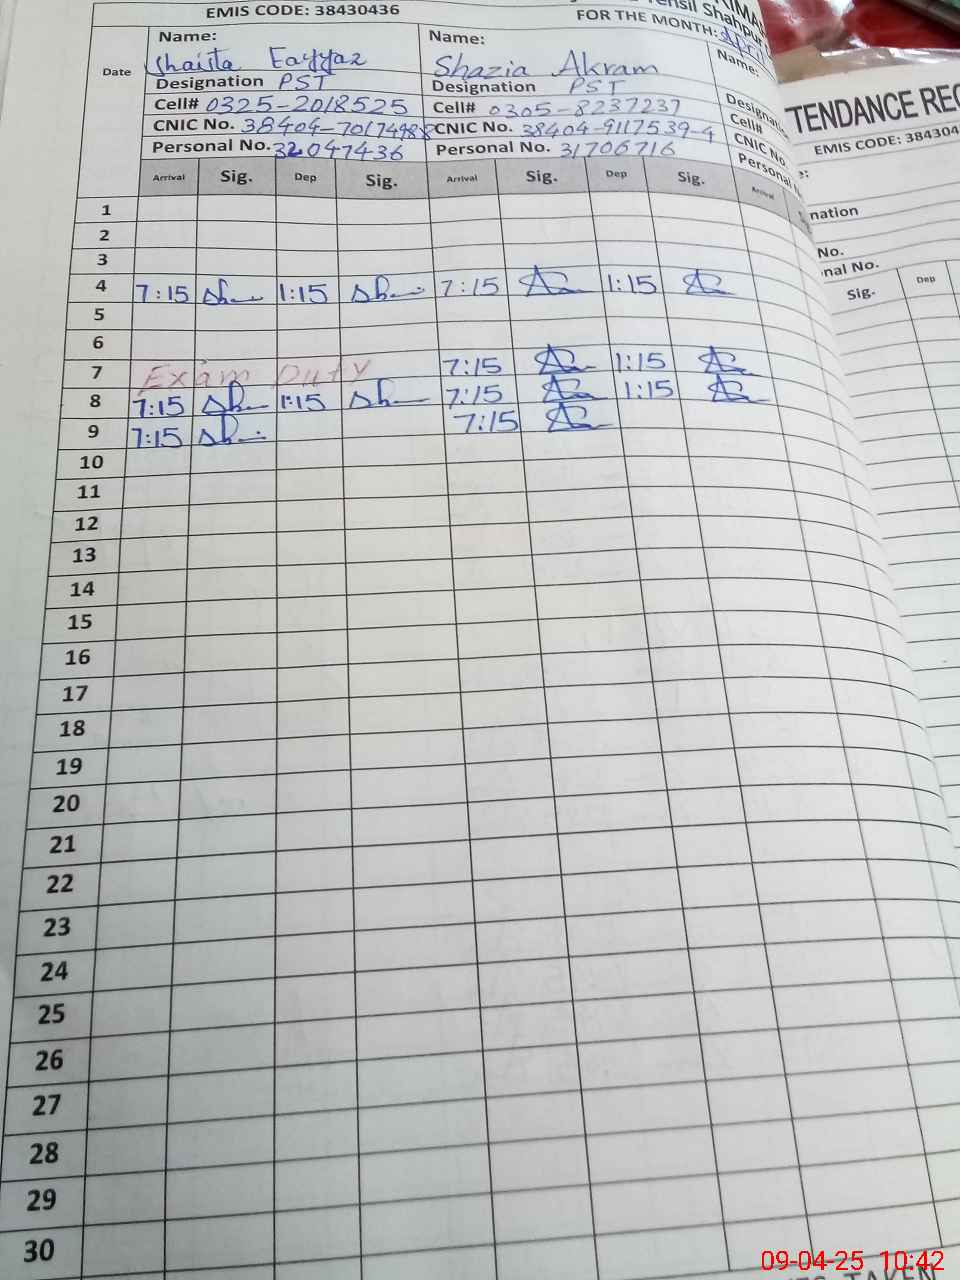 EMIS CODE: 38430436
FOR THE MONTH: April
Date
Name: Shaista Fayyaz
Designation PST
Cell# 0325-2018525
CNIC No.
Personal No. 32047436
Name: Shazia Akram
Designation PST
Cell# 0305-8237237
CNIC No. 38404-9117539-4
Personal No. 31706716
Name:
Cell#
CNIC No.
Arrival Sig. Dep Sig. Arrival Sig. Dep Sig. Arrival
1
2
3
4 7:15 1:15 7:15 1:15
5
6
7 Exam Duty 7:15 1:15
8 7:15 1:15 7:15 1:15
9 7:15 7:15
10
11
12
13
14
15
16
17
18
19
20
21
22
23
24
25
26
27
28
29
30
TENDANCE REG
EMIS CODE: 384304
nation
No.
nal No.
Sig. Dep
09-04-25 10:42